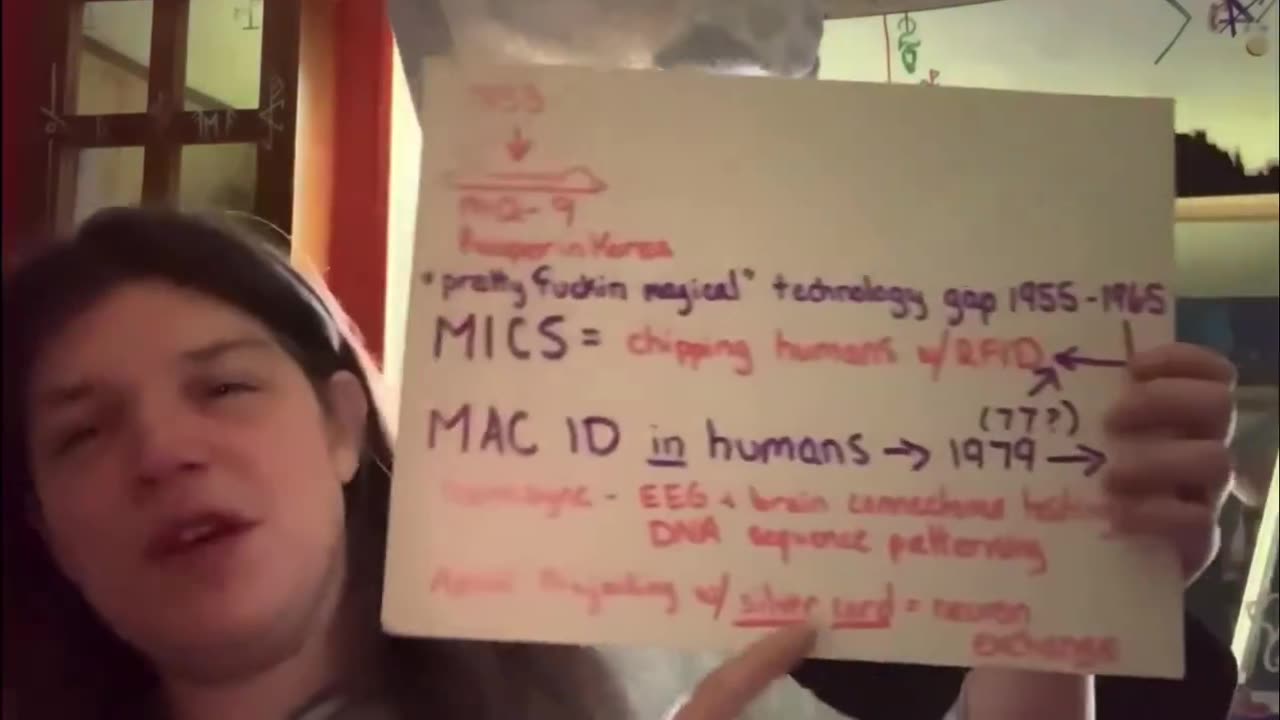 1953
MQ-9
Reaper in Korea
"pretty fuckin magical" technology gap 1955-1965
MICS = chipping humans w/ RFID
(77?)
MAC ID in humans → 1979 →
- EEG + brain connections
DNA sequence patterning
w/ silver cord = neuron
exchange